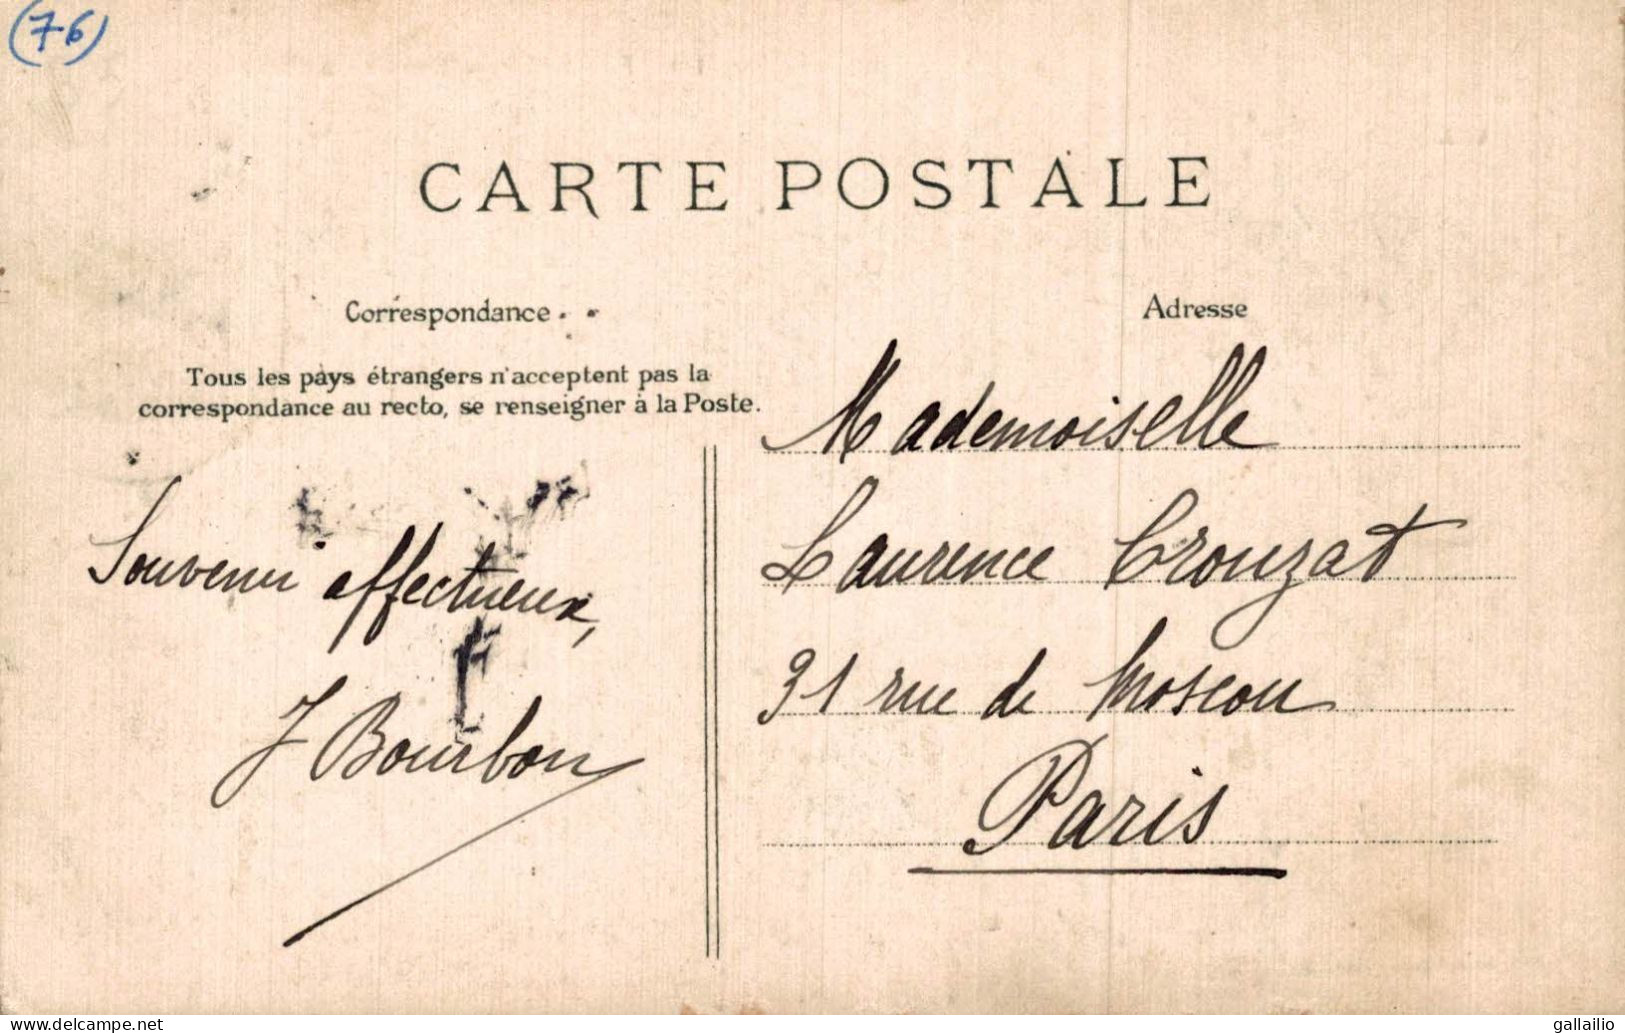 (76)
CARTE POSTALE
Correspondance
Tous les pays étrangers n'acceptent pas la
correspondance au recto, se renseigner à la Poste.
Souvenir affectueux,
J Bourbon
Adresse
Mademoiselle
Laurence Crouzat
31 rue de Moscou
Paris
www.delcampe.net
gallailio